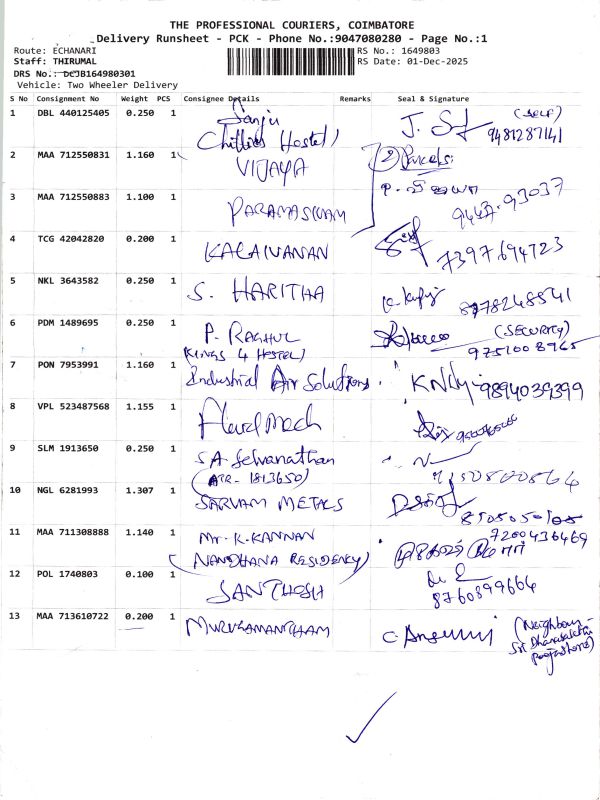 THE PROFESSIONAL COURIERS, COIMBATORE
Delivery Runsheet - PCK - Phone No.:9047080280 - Page No.:1
Route: ECHANARI
RS No.: 1649803
Staff: THIRUMAL
RS Date: 01-Dec-2025
DRS No.: DCJB164980301
Vehicle: Two Wheeler Delivery
S No Consignment No Weight PCS Consignee Details Remarks Seal & Signature
1 DBL 440125405 0.250 1 Sanju J. (SELF)
Chillies Hostel) 9481287141
2 MAA 712550831 1.160 1 VIJAYA (2) Parcels.
3 MAA 712550883 1.100 1 PARAMASIVAM 9442-93037
4 TCG 42042820 0.200 1 KALAIVANAN 7397694723
5 NKL 3643582 0.250 1 S. HARITHA 8778248541
6 PDM 1489695 0.250 1 P. RAGHUL (SECURITY)
(KINGS 4 HOSTEL) 9751008965
7 PON 7953991 1.160 1 Industrial Air Solutions. 9894039399
8 VPL 523487568 1.155 1
9 SLM 1913650 0.250 1 S A Selvanathan
(ATR- 1813650)
10 NGL 6281993 1.307 1 SARVAM METALS
11 MAA 711308888 1.140 1 Mr. K. KANNAN 7200436469
(NANDHANA RESIDENCY)
12 POL 1740803 0.100 1 SANTHOSH 8760899664
13 MAA 713610722 0.200 1 MURUGAMANICKAM (Neighbour -
Sri